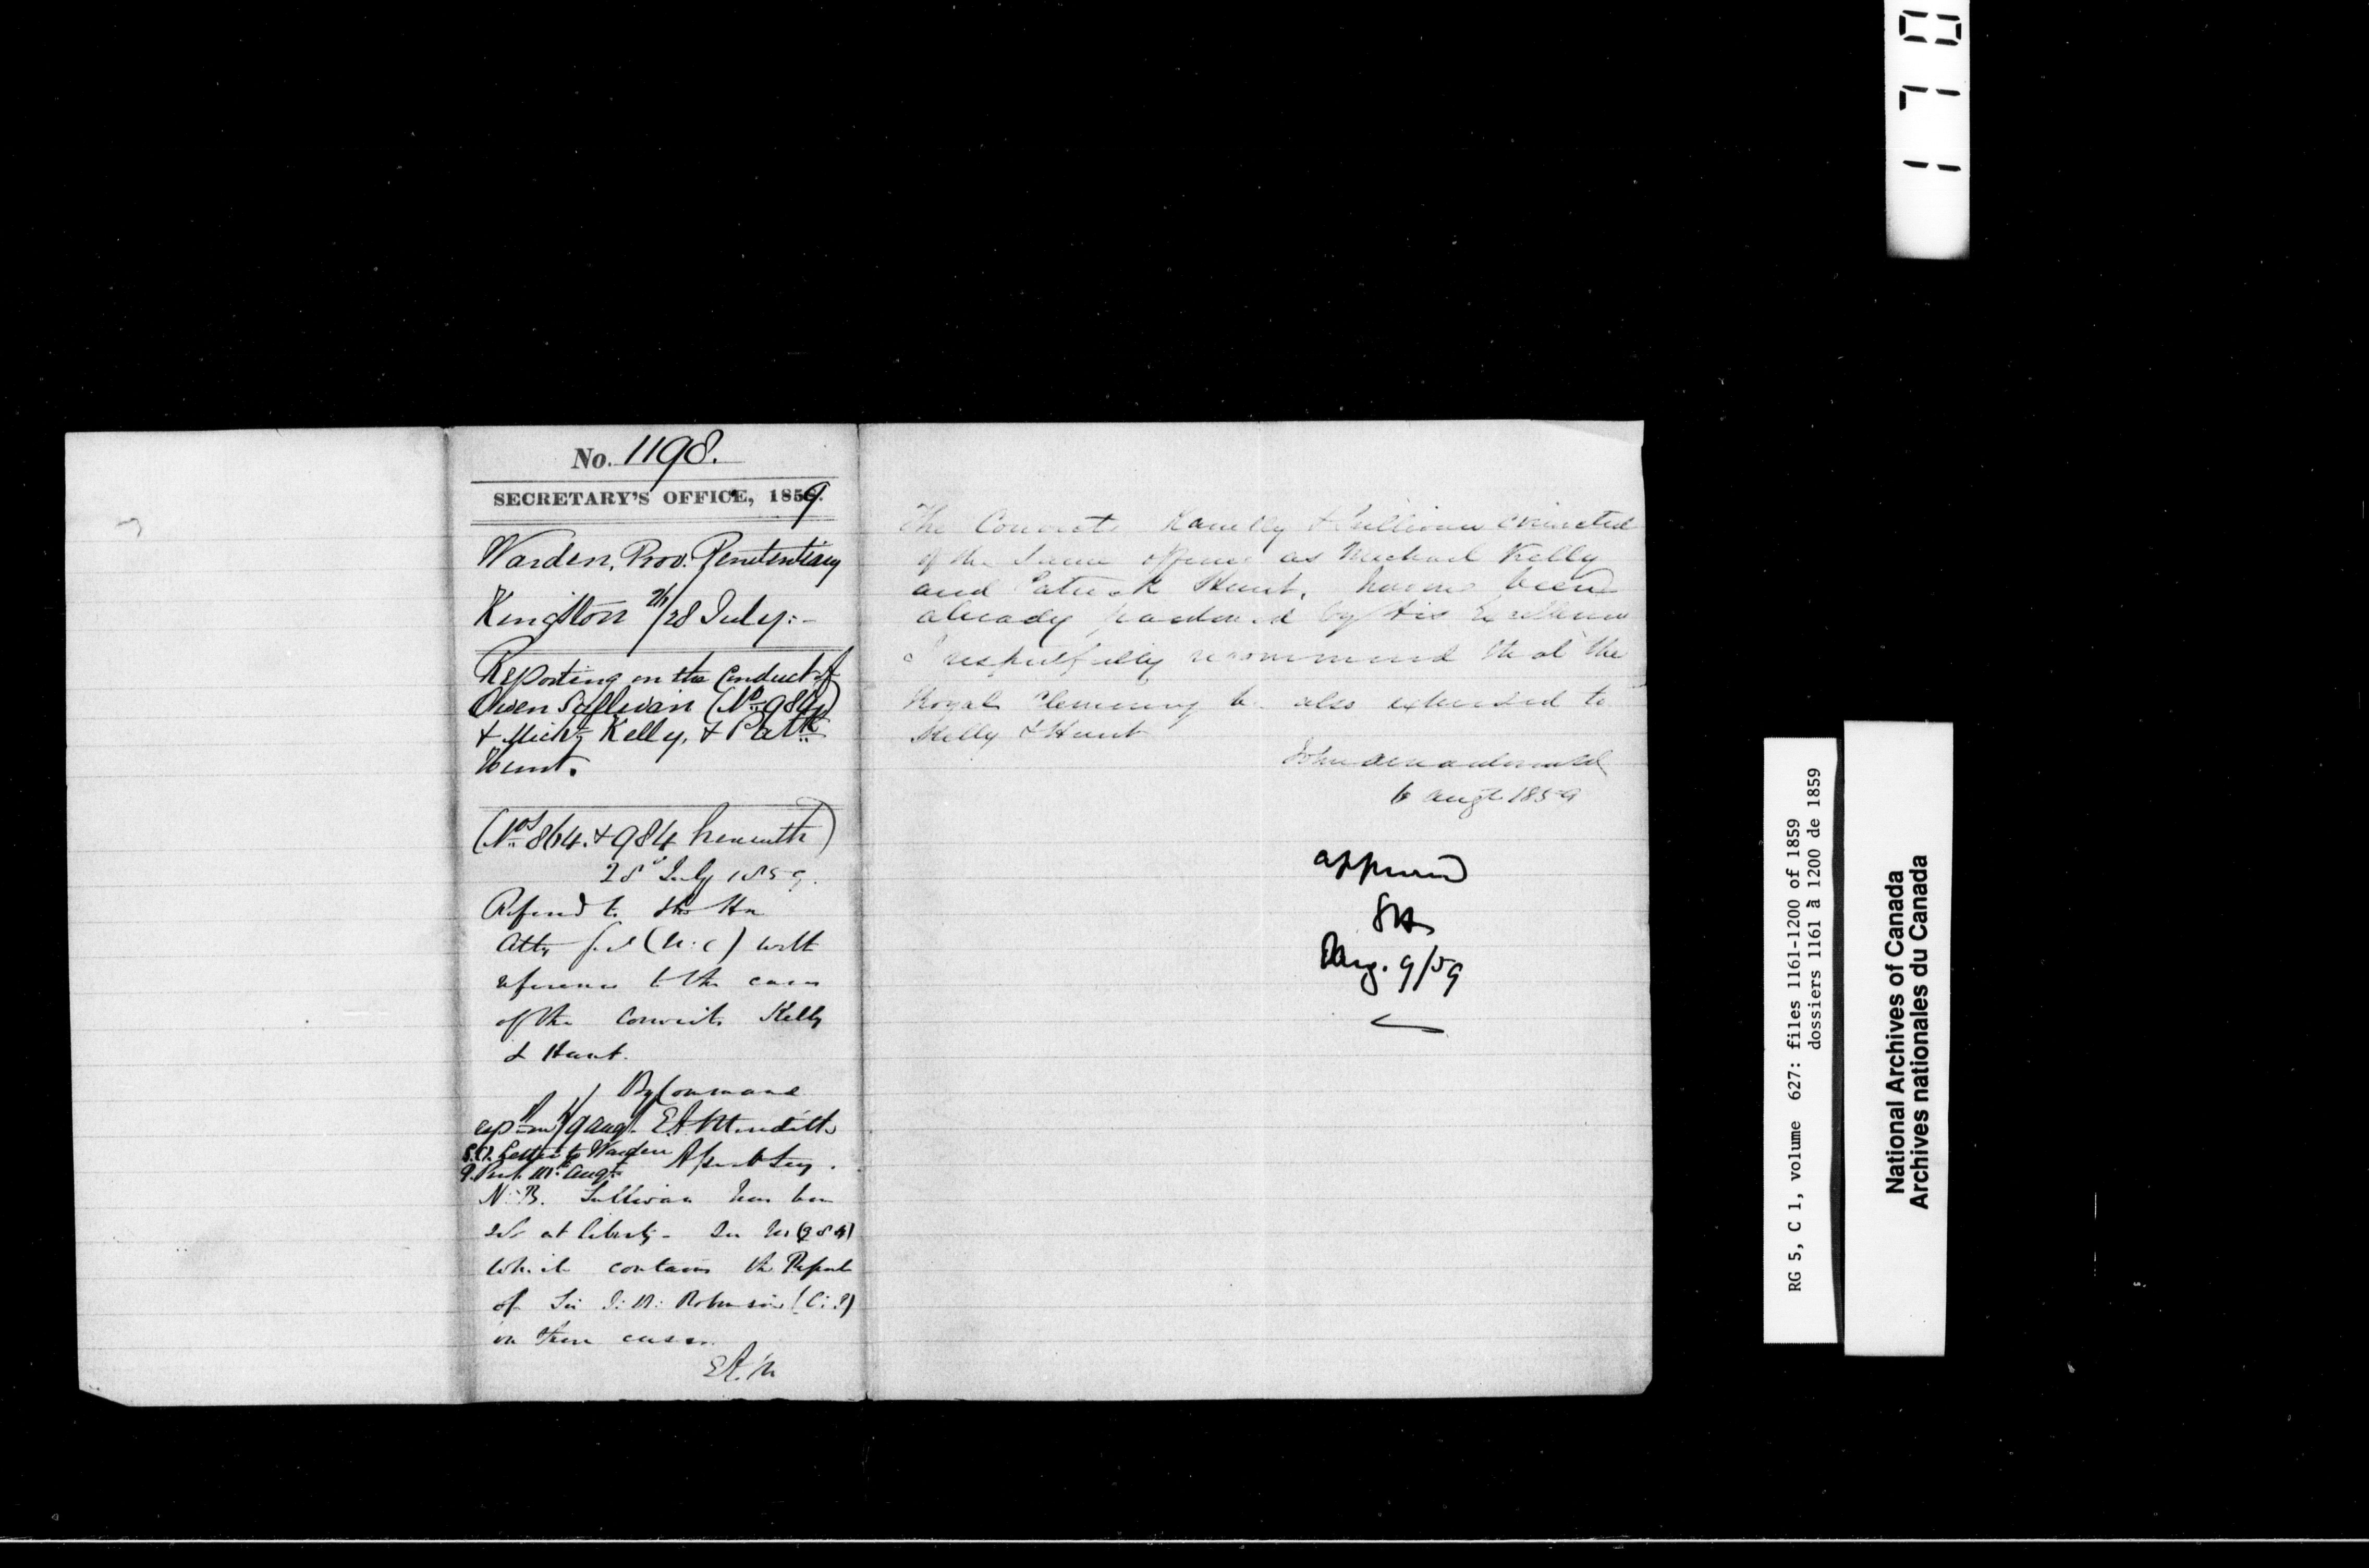 No. 1198.
SECRETARY'S OFFICE, 1859.
Warden, Prov. Penitentiary
Kingston 26/28 July:-
Reporting on the Conduct of
Owen Sullivan (No. 984)
& Michl. Kelly, & Patk.
Hunt.
(Nos. 864 & 984 herewith)
28 July 1859.
Referred to the Hon
Atty Genl (U.C) with
reference to the cases
of the Convicts Kelly
& Hunt.
By Command
9 Augt. E A Meredith
S.O. Letter to Warden Asst Secy.
9 Augt.
N.B. Sullivan has been
set at liberty - See No (984)
which contains the Report
of Sir J. B. Robinson (C.J)
on these cases.
E A. M
The Convicts & Sullivan convicted
of the same offence as Michael Kelly
and Patrick Hunt, having been
already pardoned by His Excellency
I respectfully recommend that the
Royal Clemency be also extended to
Kelly & Hunt
John A Macdonald
6 Augt 1859
approved
Aug. 9/59
1170
RG 5, C 1, volume 627: files 1161-1200 of 1859
dossiers 1161 à 1200 de 1859
National Archives of Canada
Archives nationales du Canada